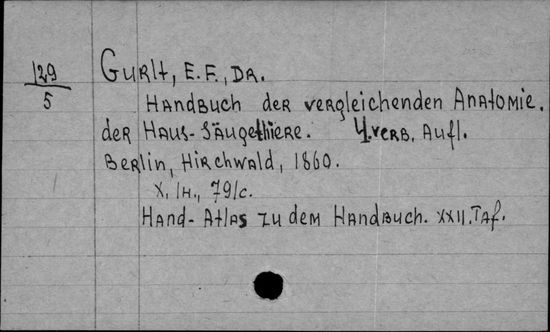 129
5
Gurlt, E. F., Dr.
Handbuch der vergleichenden Anatomie.
der Haus-Säugethiere. 4. verb. Aufl.
Berlin, Hirchwald, 1860.
X, 1H., 791c.
Hand-Atlas zu dem Handbuch. XXII. Taf.